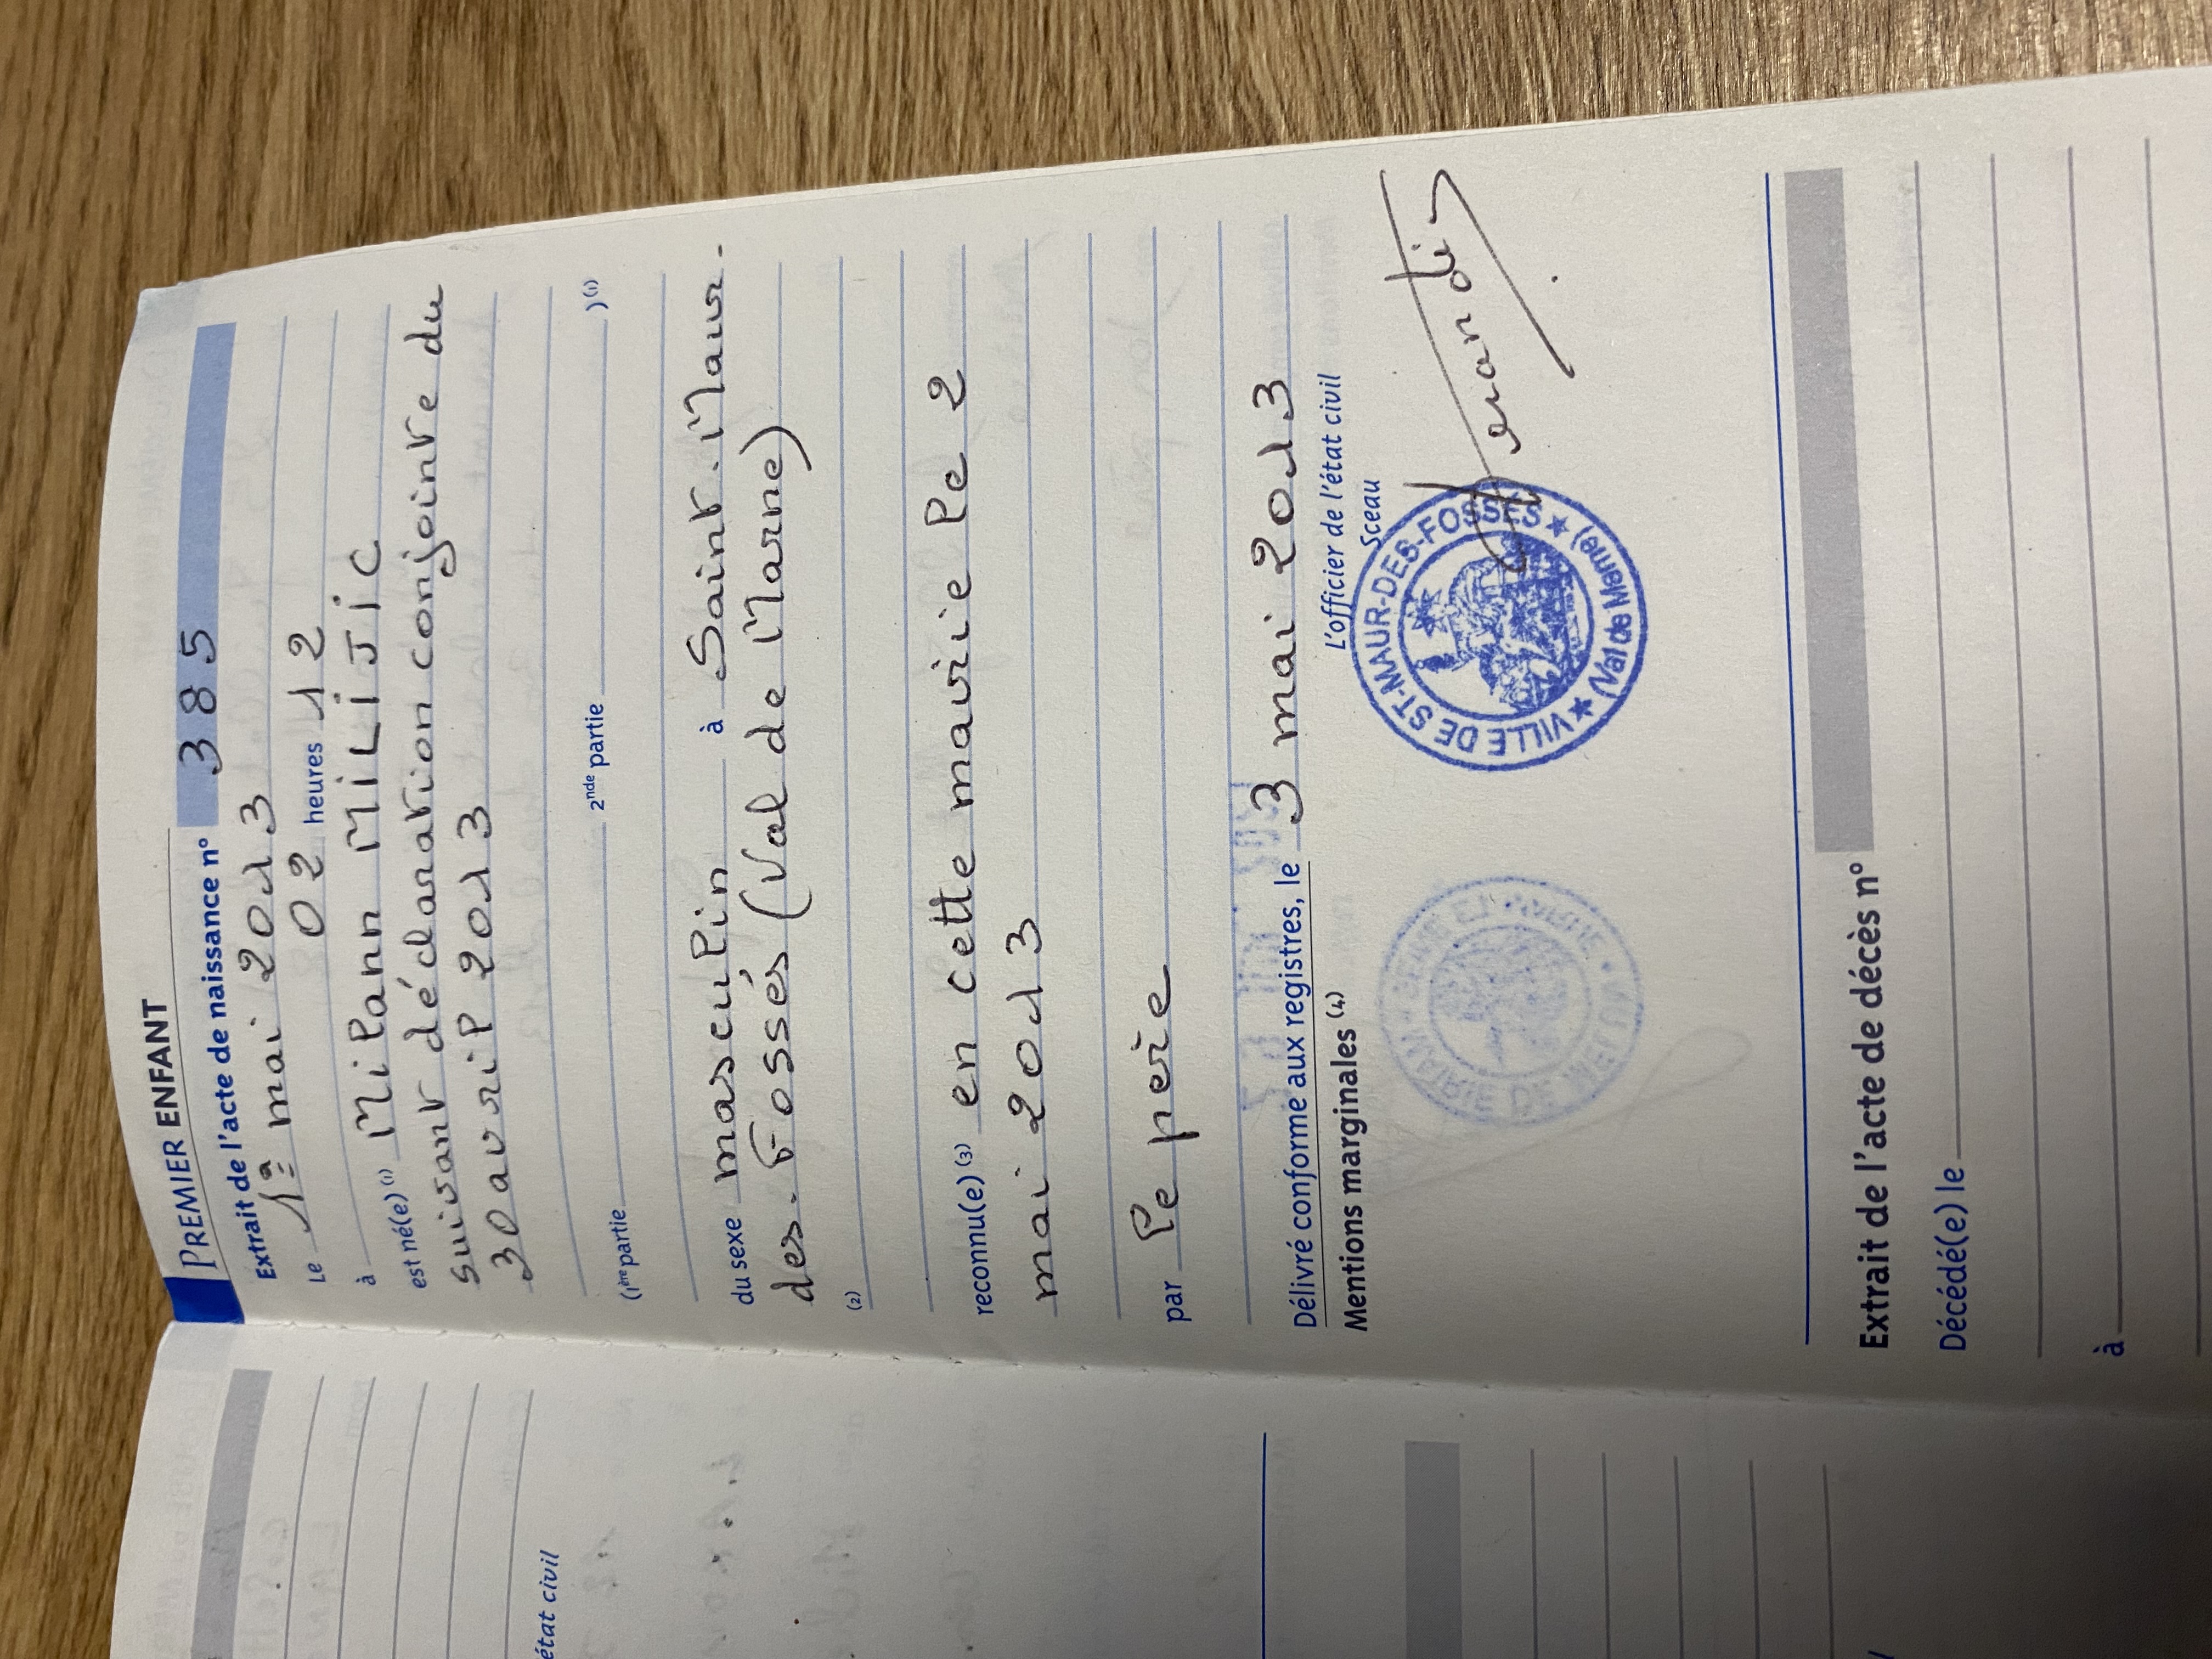 PREMIER ENFANT
Extrait de l'acte de naissance n° 385
Le 1er mai 2013
à 02 heures 12
est né(e) (1) Milann MILIJIC
suivant déclaration conjointe du
30 avril 2013
(1ère partie 2nde partie )(1)
du sexe masculin à Saint-Maur-
des-Fossés (Val de Marne)
(2)
reconnu(e) (3) en cette mairie le 2
mai 2013
par le père
Délivré conforme aux registres, le 3 mai 2013
Mentions marginales (4)
L'officier de l'état civil
Sceau
VILLE DE ST-MAUR-DES-FOSSÉS
(Val de Marne)
MAIRIE DE MELUN
SEINE ET MARNE
Extrait de l'acte de décès n°
Décédé(e) le
à
état civil